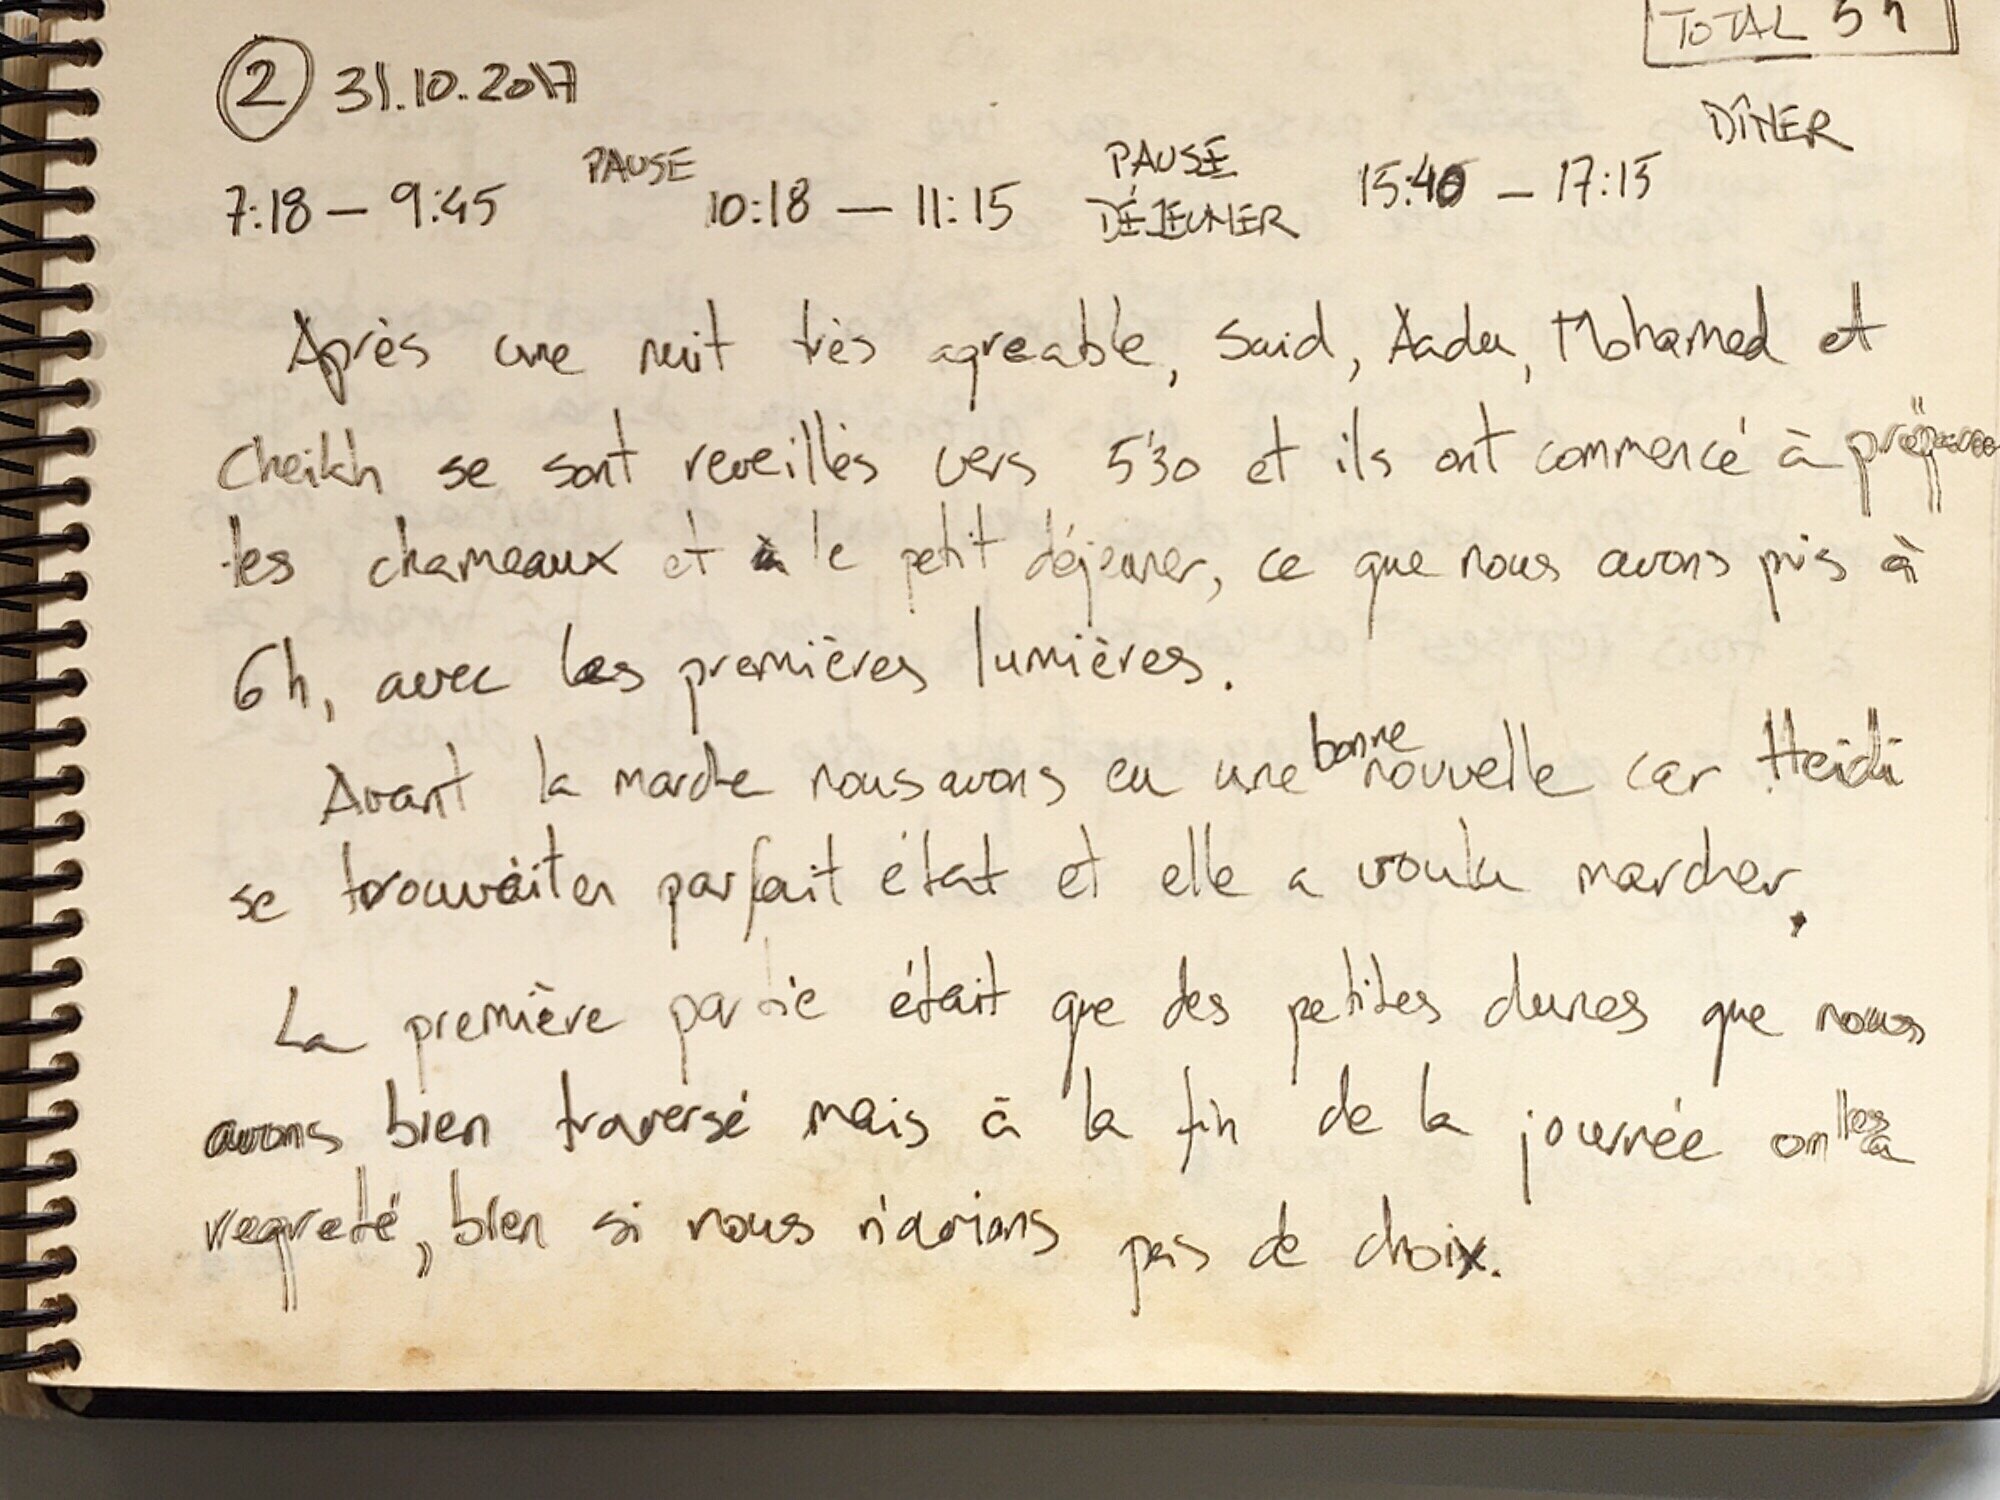 TOTAL 5 h
② 31.10.2017
DÎNER
7:18 – 9:45 PAUSE 10:18 – 11:15 PAUSE DÉJEUNER 15:40 – 17:15
Après une nuit très agreable, Said, Aada, Mohamed et
Cheikh se sont reveillés vers 5'30 et ils ont commencé à
les chameaux et à le petit déjeuner, ce que nous avons pris à
6h, avec les premières lumières.
Avant la marche nous avons eu une bonne nouvelle car Heidi
se trouvait en parfait état et elle a voulu marcher.
La première partie était que des petites dunes que nous
avons bien traversé mais à la fin de la journée on les a
regreté, bien si nous n'avions pas de choix.